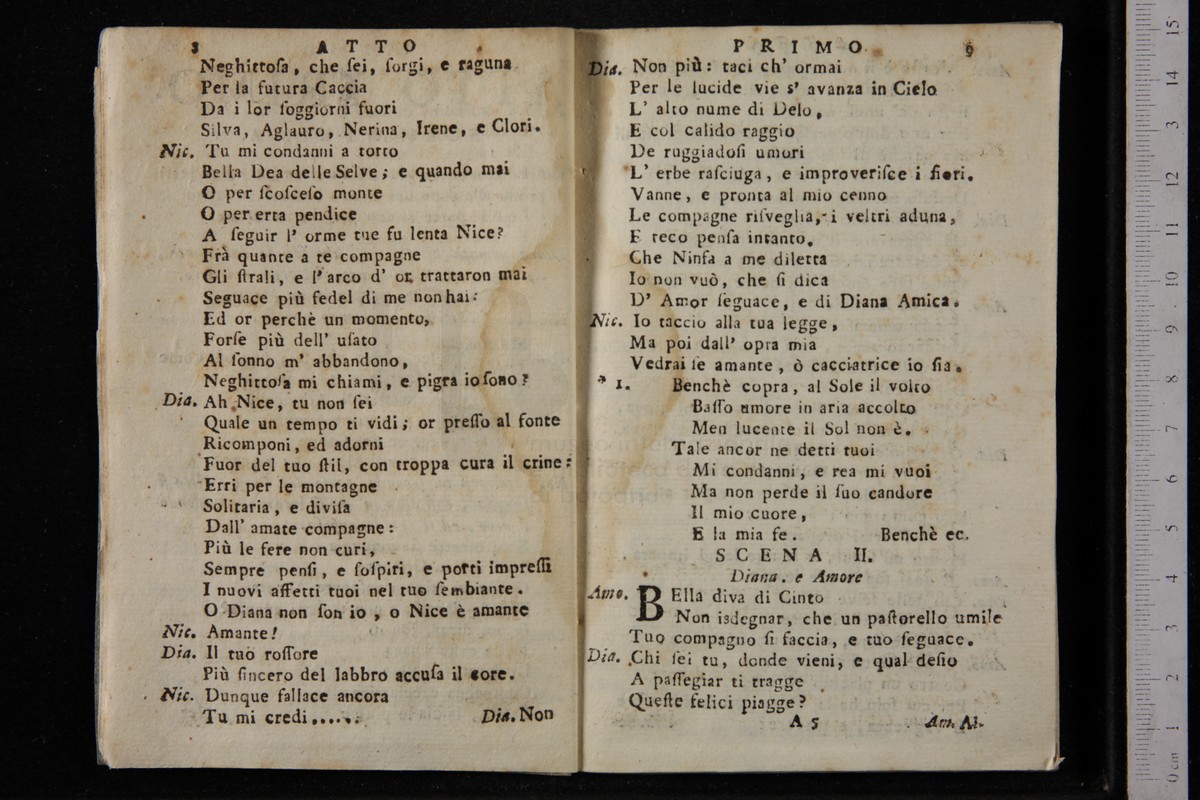 8 ATTO
Neghittoſa, che ſei, ſorgi, e raguna
Per la futura Caccia
Da i lor ſoggiorni fuori
Silva, Aglauro, Nerina, Irene, e Clori.
Nic. Tu mi condanni a torto
Bella Dea delle Selve; e quando mai
O per ſcoſceſo monte
O per erta pendice
A ſeguir l' orme tue fu lenta Nice?
Frà quante a te compagne
Gli ſtrali, e l' arco d' or trattaron mai
Seguace più fedel di me non hai:
Ed or perchè un momento,
Forſe più dell' uſato
Al ſonno m' abbandono,
Neghittoſa mi chiami, e pigra io ſono?
Dia. Ah Nice, tu non ſei
Quale un tempo ti vidi; or preſſo al fonte
Ricomponi, ed adorni
Fuor del tuo ſtil, con troppa cura il crine:
Erri per le montagne
Solitaria, e diviſa
Dall' amate compagne:
Più le fere non curi,
Sempre penſi, e ſoſpiri, e porti impreſſi
I nuovi affetti tuoi nel tuo ſembiante.
O Diana non ſon io, o Nice è amante
Nic. Amante!
Dia. Il tuo roſſore
Più ſincero del labbro accuſa il core.
Nic. Dunque fallace ancora
Tu mi credi......
Dia. Non
PRIMO 9
Dia. Non più: taci ch' ormai
Per le lucide vie s' avanza in Cielo
L' alto nume di Delo,
E col calido raggio
De ruggiadoſi umori
L' erbe raſciuga, e improveriſce i fiori.
Vanne, e pronta al mio cenno
Le compagne riſveglia, i veltri aduna,
E teco penſa intanto,
Che Ninfa a me diletta
Io non vuò, che ſi dica
D' Amor ſeguace, e di Diana Amica.
Nic. Io taccio alla tua legge,
Ma poi dall' opra mia
Vedrai ſe amante, ò cacciatrice io ſia.
* 1. Benchè copra, al Sole il volto
Baſſo umore in aria accolto
Men lucente il Sol non è.
Tale ancor ne detti tuoi
Mi condanni, e rea mi vuoi
Ma non perde il ſuo candore
Il mio cuore,
E la mia fe. Benchè ec.
SCENA II.
Diana. e Amore
Amo. BElla diva di Cinto
Non isdegnar, che un paſtorello umile
Tuo compagno ſi faccia, e tuo ſeguace.
Dia. Chi ſei tu, donde vieni, e qual deſio
A paſſegiar ti tragge
Queſte felici piagge?
A 5 Am. Al-